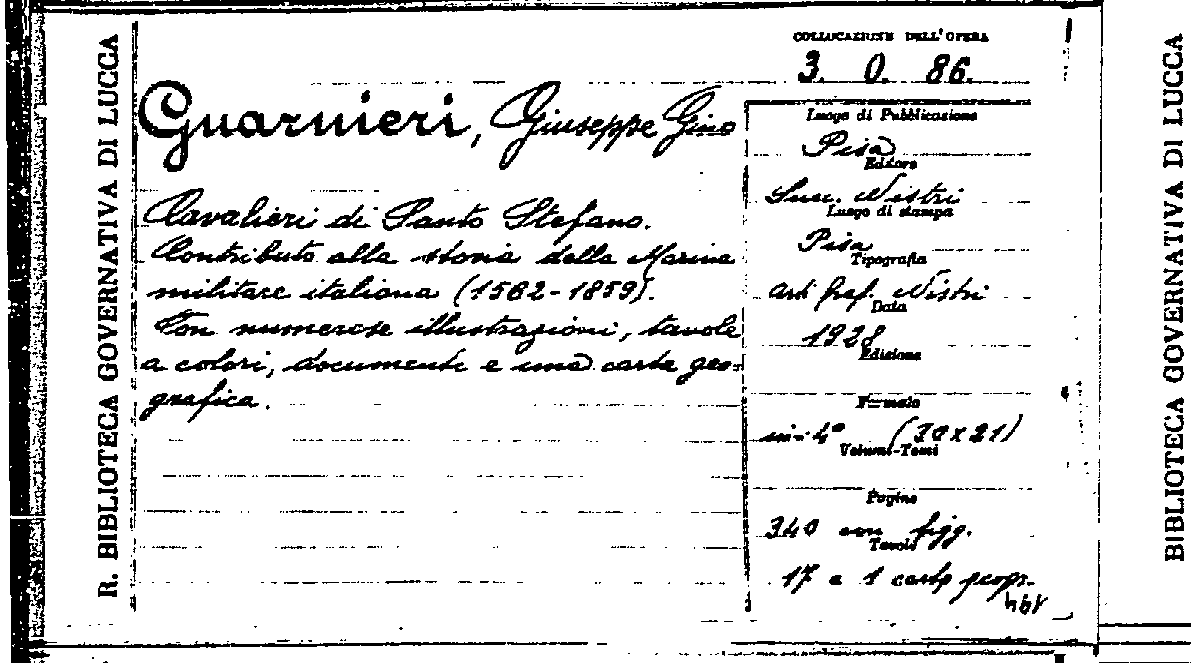 R. BIBLIOTECA GOVERNATIVA DI LUCCA
COLLOCAZIONE DELL'OPERA
3. O. 86.
Guarnieri, Giuseppe Gino
Cavalieri di Santo Stefano.
Contributo alla storia della Marina
militare italiana (1562-1859).
Con numerose illustrazioni, tavole
a colori, documenti e una carta geo-
grafica.
Luogo di Pubblicazione
Pisa
Editore
Succ. Nistri
Luogo di stampa
Pisa
Tipografia
arti graf. Nistri
Data
1928
Edizione
Formato
in-4° (30x21)
Volumi-Tomi
Pagine
340 con figg.
Tavole
17 e 1 carta geogr.
BIBLIOTECA GOVERNATIVA DI LUCCA